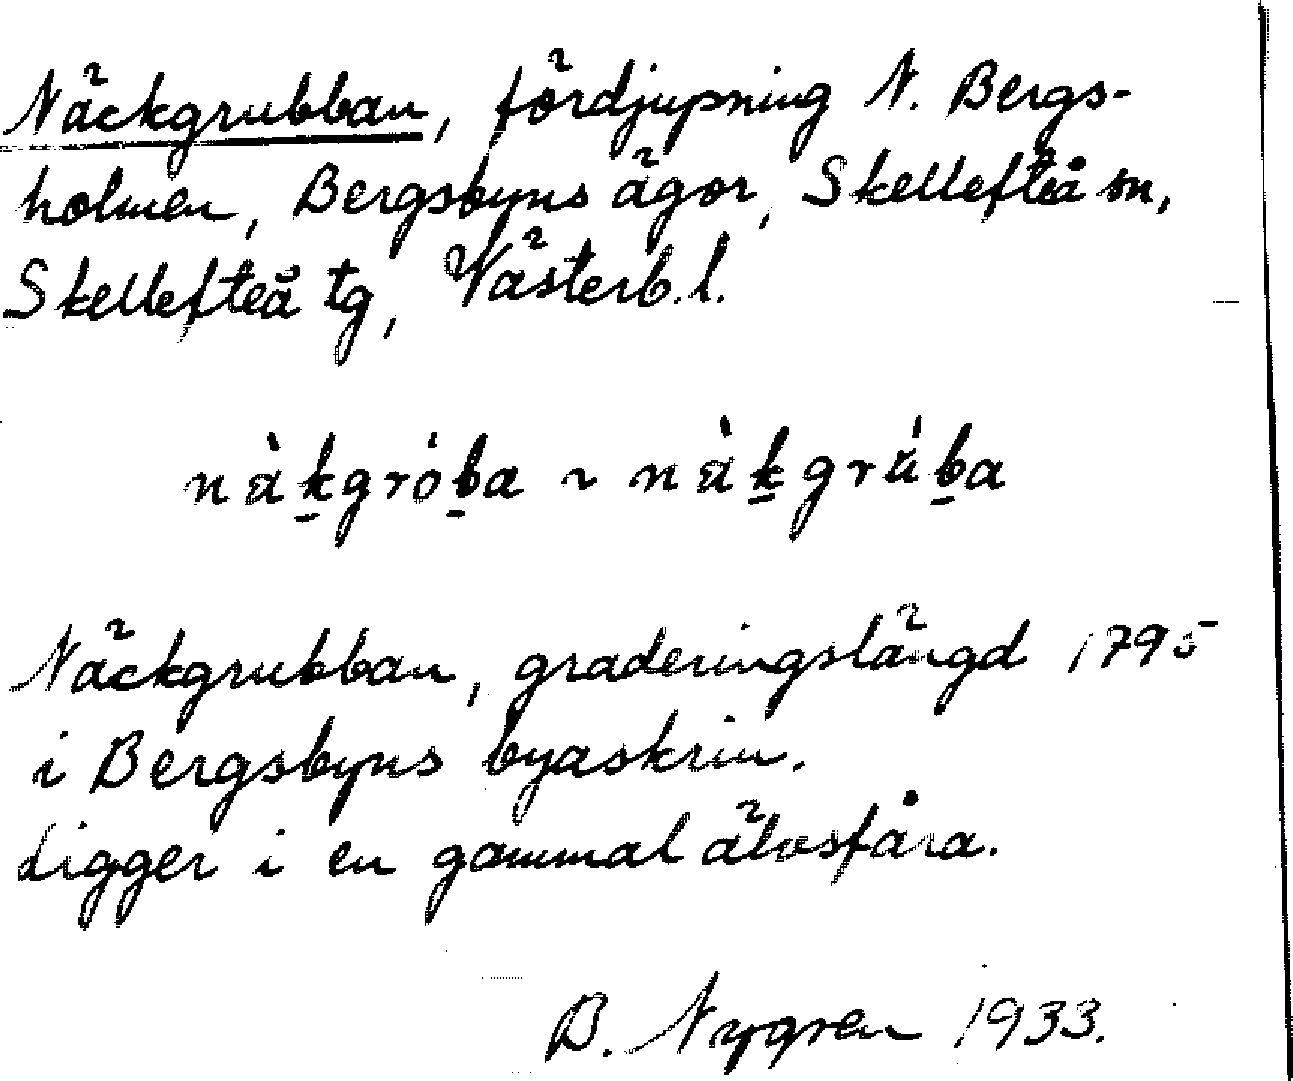 Näckgrubban, fördjupning N. Bergs-
holmen, Bergsbyns ägor, Skellefteå sn,
Skellefteå tg, Västerb. l.
nä̀k̲grób̲a ~ nä̀k̲grúb̲a
Näckgrubban, graderingslängd 1795
i Bergsbyns byaskrin.
Ligger i en gammal älvsfåra.
B. Nygren 1933.